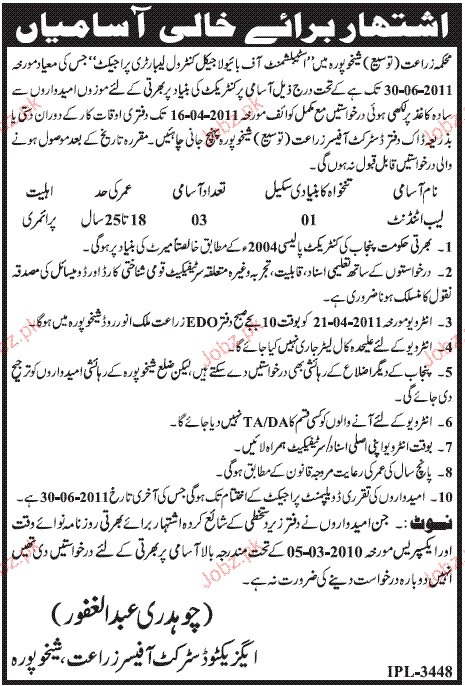 اشتہار برائے خالی آسامیاں
محکمہ زراعت (توسیع) شیخوپورہ میں "اسٹیبلشمنٹ آف بائیولاجیکل کنٹرول لیبارٹری پراجیکٹ" جس کی معیاد مورخہ
30-06-2011 تک ہے کے تحت درج ذیل آسامی پر کنٹریکٹ کی بنیاد پر بھرتی کے لئے موزوں امیدواروں سے
سادہ کاغذ پر لکھی ہوئی درخواستیں مع مکمل کوائف مورخہ 16-04-2011 تک دفتری اوقات کار کے دوران دستی یا
بذریعہ ڈاک دفتر ڈسٹرکٹ آفیسر زراعت (توسیع) شیخوپورہ پہنچ جانی چاہئیں۔ مقررہ تاریخ کے بعد موصول ہونے والی
درخواستیں قابل قبول نہ ہوں گی۔
نام آسامی تنخواہ کا بنیادی سکیل تعداد آسامی عمر کی حد اہلیت
لیب اٹنڈنٹ 01 03 18 تا 25 سال پرائمری
1- بھرتی حکومت پنجاب کی کنٹریکٹ پالیسی 2004ء کے مطابق خالصتاً میرٹ کی بنیاد پر ہوگی۔
2- درخواستوں کے ساتھ تعلیمی اسناد، قابلیت، تجربہ وغیرہ متعلقہ سرٹیفکیٹ قومی شناختی کارڈ اور ڈومیسائل کی مصدقہ
نقول کا منسلک ہونا ضروری ہے۔
3- انٹرویو مورخہ 21-04-2011 کو بوقت 10 بجے صبح دفتر EDO زراعت ملک انور روڈ شیخوپورہ میں ہوگا۔
4- انٹرویو کے لئے علیحدہ کال لیٹر جاری نہیں کیا جائے گا۔
5- پنجاب کے دیگر اضلاع کے رہائشی بھی درخواستیں دے سکتے ہیں، لیکن ضلع شیخوپورہ کے رہائشی امیدواروں کو ترجیح
دی جائے گی۔
6- انٹرویو کے لئے آنے والوں کو کسی قسم کا TA/DA نہیں دیا جائے گا۔
7- بوقت انٹرویو اپنی اصلی اسناد/سرٹیفکیٹ ہمراہ لائیں۔
8- پانچ سال کی عمر کی رعایت مروجہ قانون کے مطابق ہوگی۔
10- امیدواروں کی تقرری ڈویلپمنٹ پراجیکٹ کے اختتام تک ہوگی جس کی آخری تاریخ 30-06-2011 ہے۔
نوٹ:- جن امیدواروں نے دفتر زیر دستخطی کے شائع کردہ اشتہار برائے بھرتی روزنامہ نوائے وقت
اور ایکسپریس مورخہ 05-03-2010 کے تحت مندرجہ بالا آسامی پر بھرتی کے لئے درخواستیں دی تھیں
انہیں دوبارہ درخواست دینے کی ضرورت نہ ہے۔
(چوہدری عبدالغفور)
ایگزیکٹو ڈسٹرکٹ آفیسر زراعت، شیخوپورہ
IPL-3448
Jobz.pk